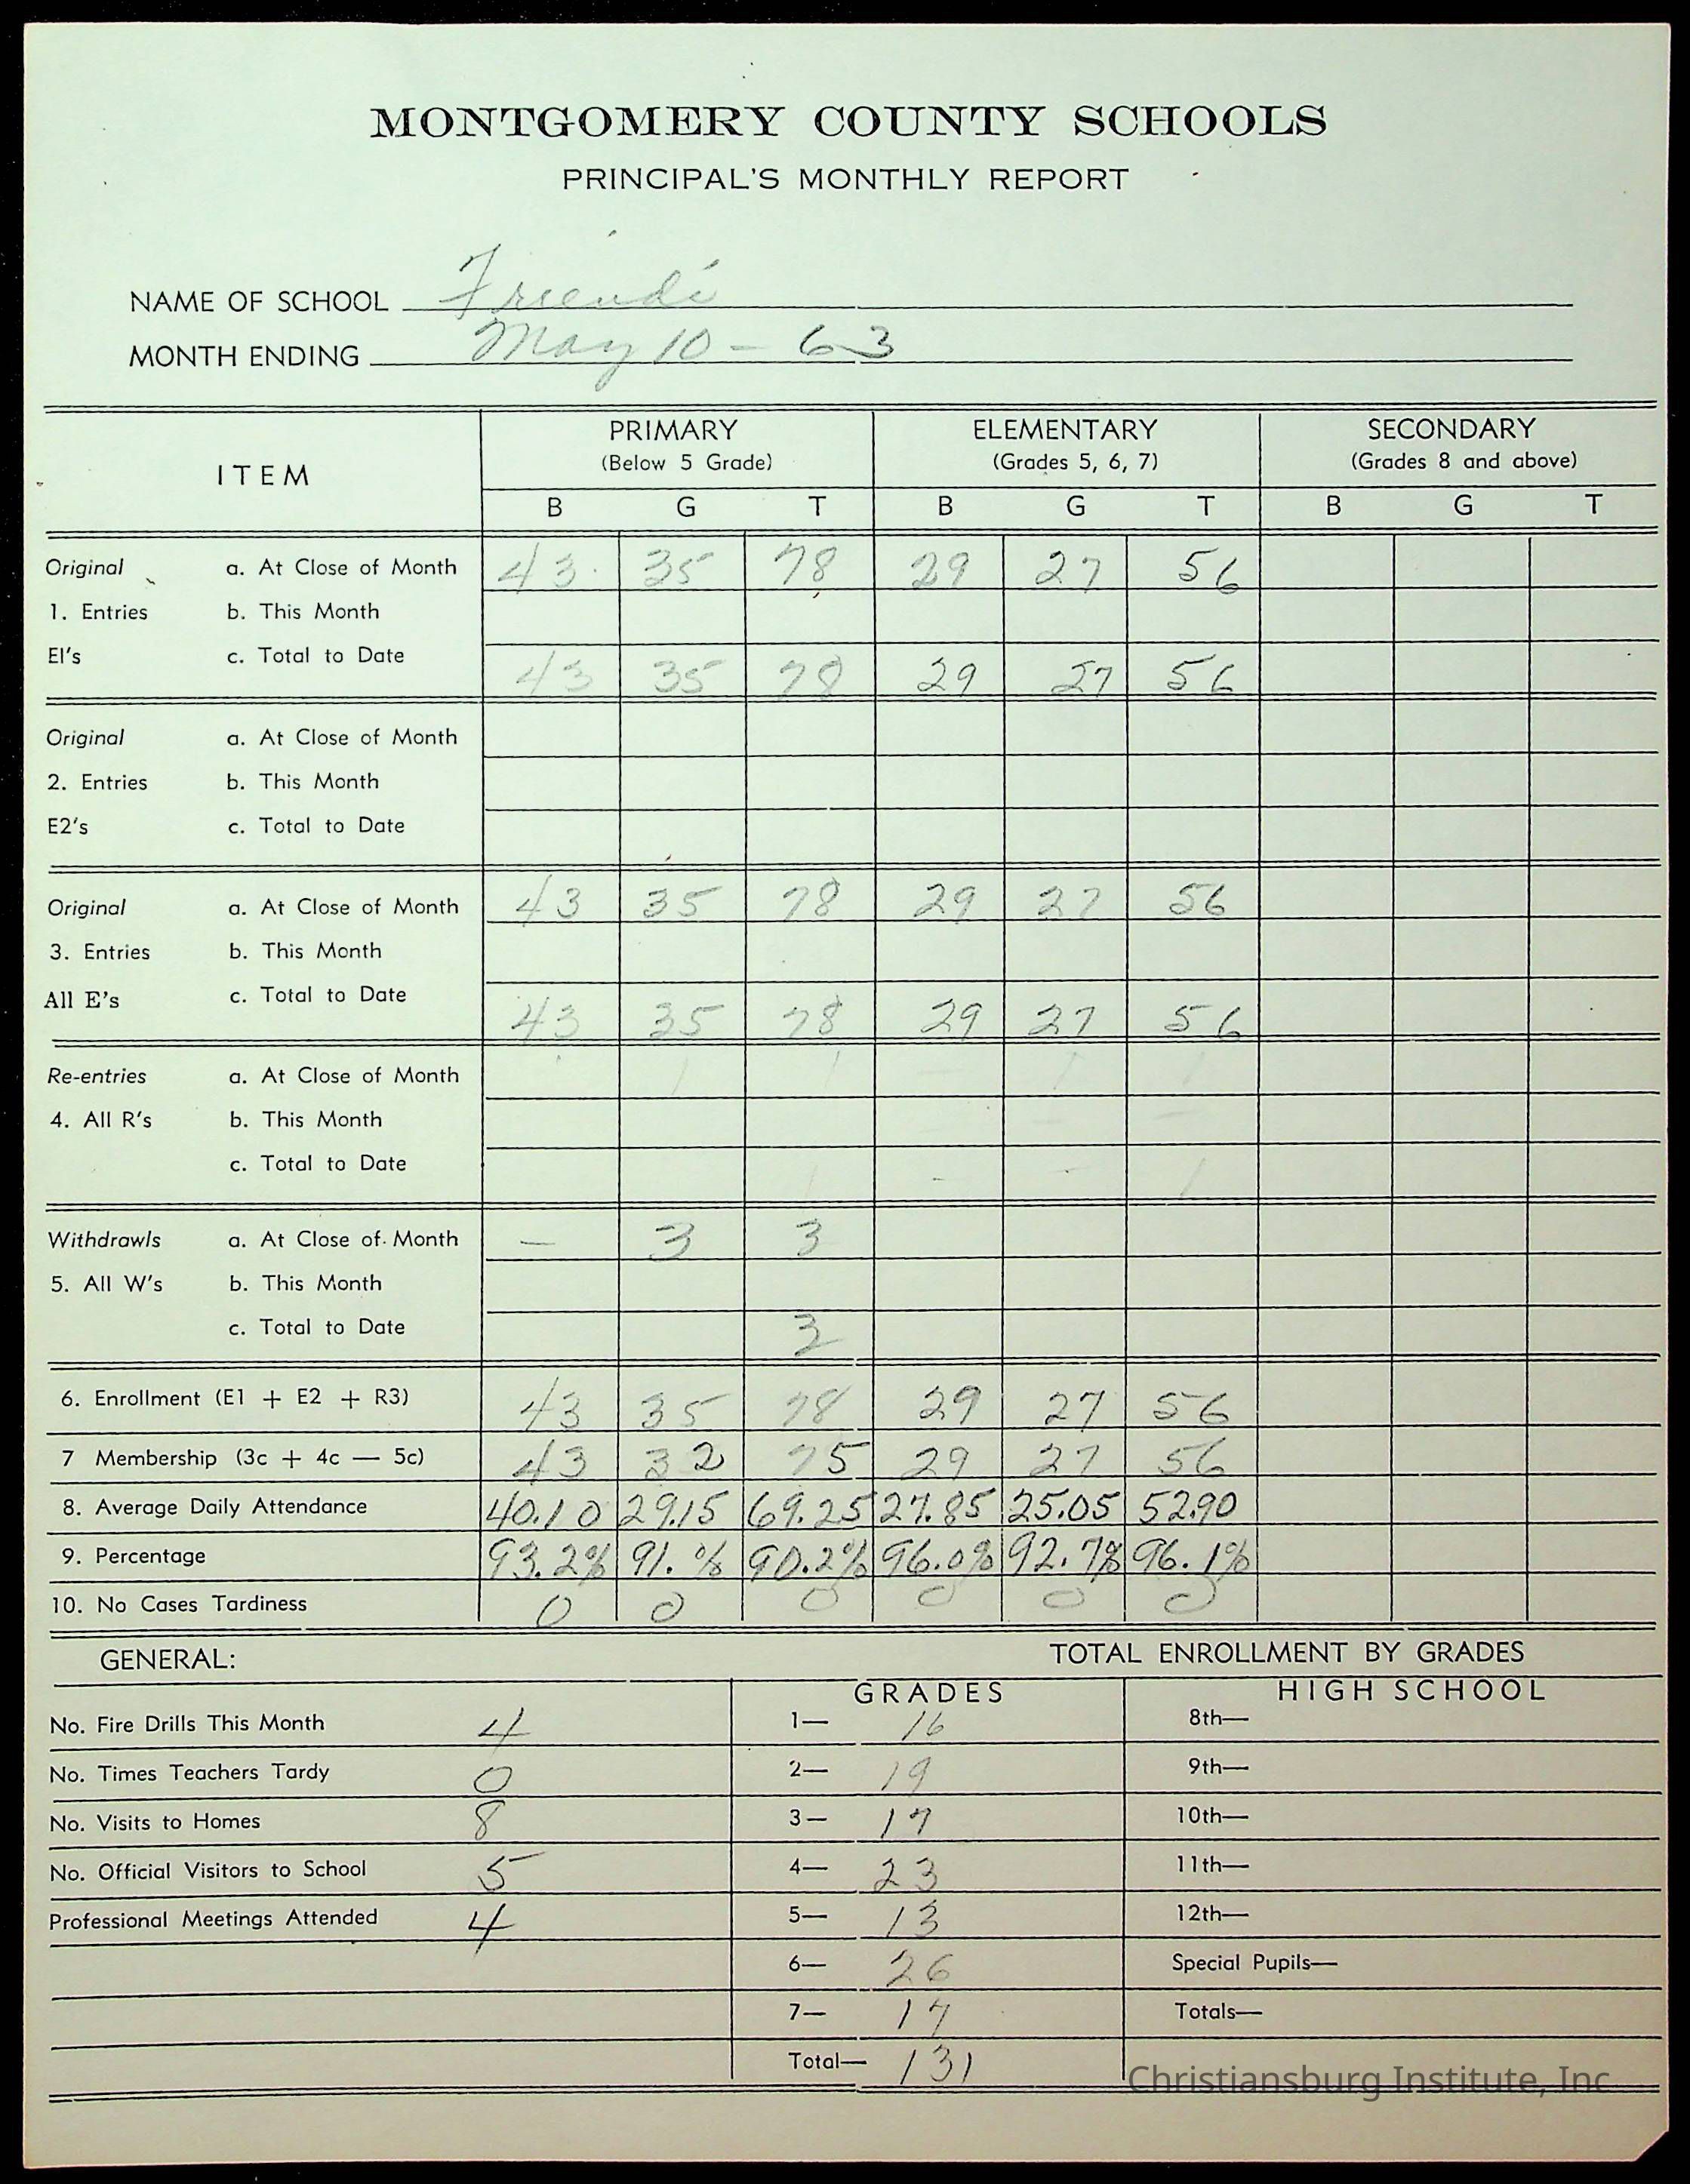 MONTGOMERY COUNTY SCHOOLS
PRINCIPAL'S MONTHLY REPORT
NAME OF SCHOOL Friends
MONTH ENDING May 10 - 63
ITEM
PRIMARY ELEMENTARY SECONDARY
(Below 5 Grade) (Grades 5, 6, 7) (Grades 8 and above)
B G T B G T B G T
Original a. At Close of Month 43 35 78 29 27 56
1. Entries b. This Month
El's c. Total to Date 43 35 78 29 27 56
Original a. At Close of Month
2. Entries b. This Month
E2's c. Total to Date
Original a. At Close of Month 43 35 78 29 27 56
3. Entries b. This Month
All E's c. Total to Date 43 35 78 29 27 56
Re-entries a. At Close of Month
4. All R's b. This Month
c. Total to Date
Withdrawls a. At Close of Month — 3 3
5. All W's b. This Month
c. Total to Date 3
6. Enrollment (E1 + E2 + R3) 43 35 78 29 27 56
7 Membership (3c + 4c — 5c) 43 32 75 29 27 56
8. Average Daily Attendance 40.10 29.15 69.25 27.85 25.05 52.90
9. Percentage 93.2% 91.% 90.2% 96.0% 92.7% 96.1%
10. No Cases Tardiness 0 0 0 0 0 0
GENERAL: TOTAL ENROLLMENT BY GRADES
GRADES HIGH SCHOOL
No. Fire Drills This Month 4 1— 16 8th—
No. Times Teachers Tardy 0 2— 19 9th—
No. Visits to Homes 8 3— 17 10th—
No. Official Visitors to School 5 4— 23 11th—
Professional Meetings Attended 4 5— 13 12th—
6— 26 Special Pupils—
7— 17 Totals—
Total— 131
Christiansburg Institute, Inc